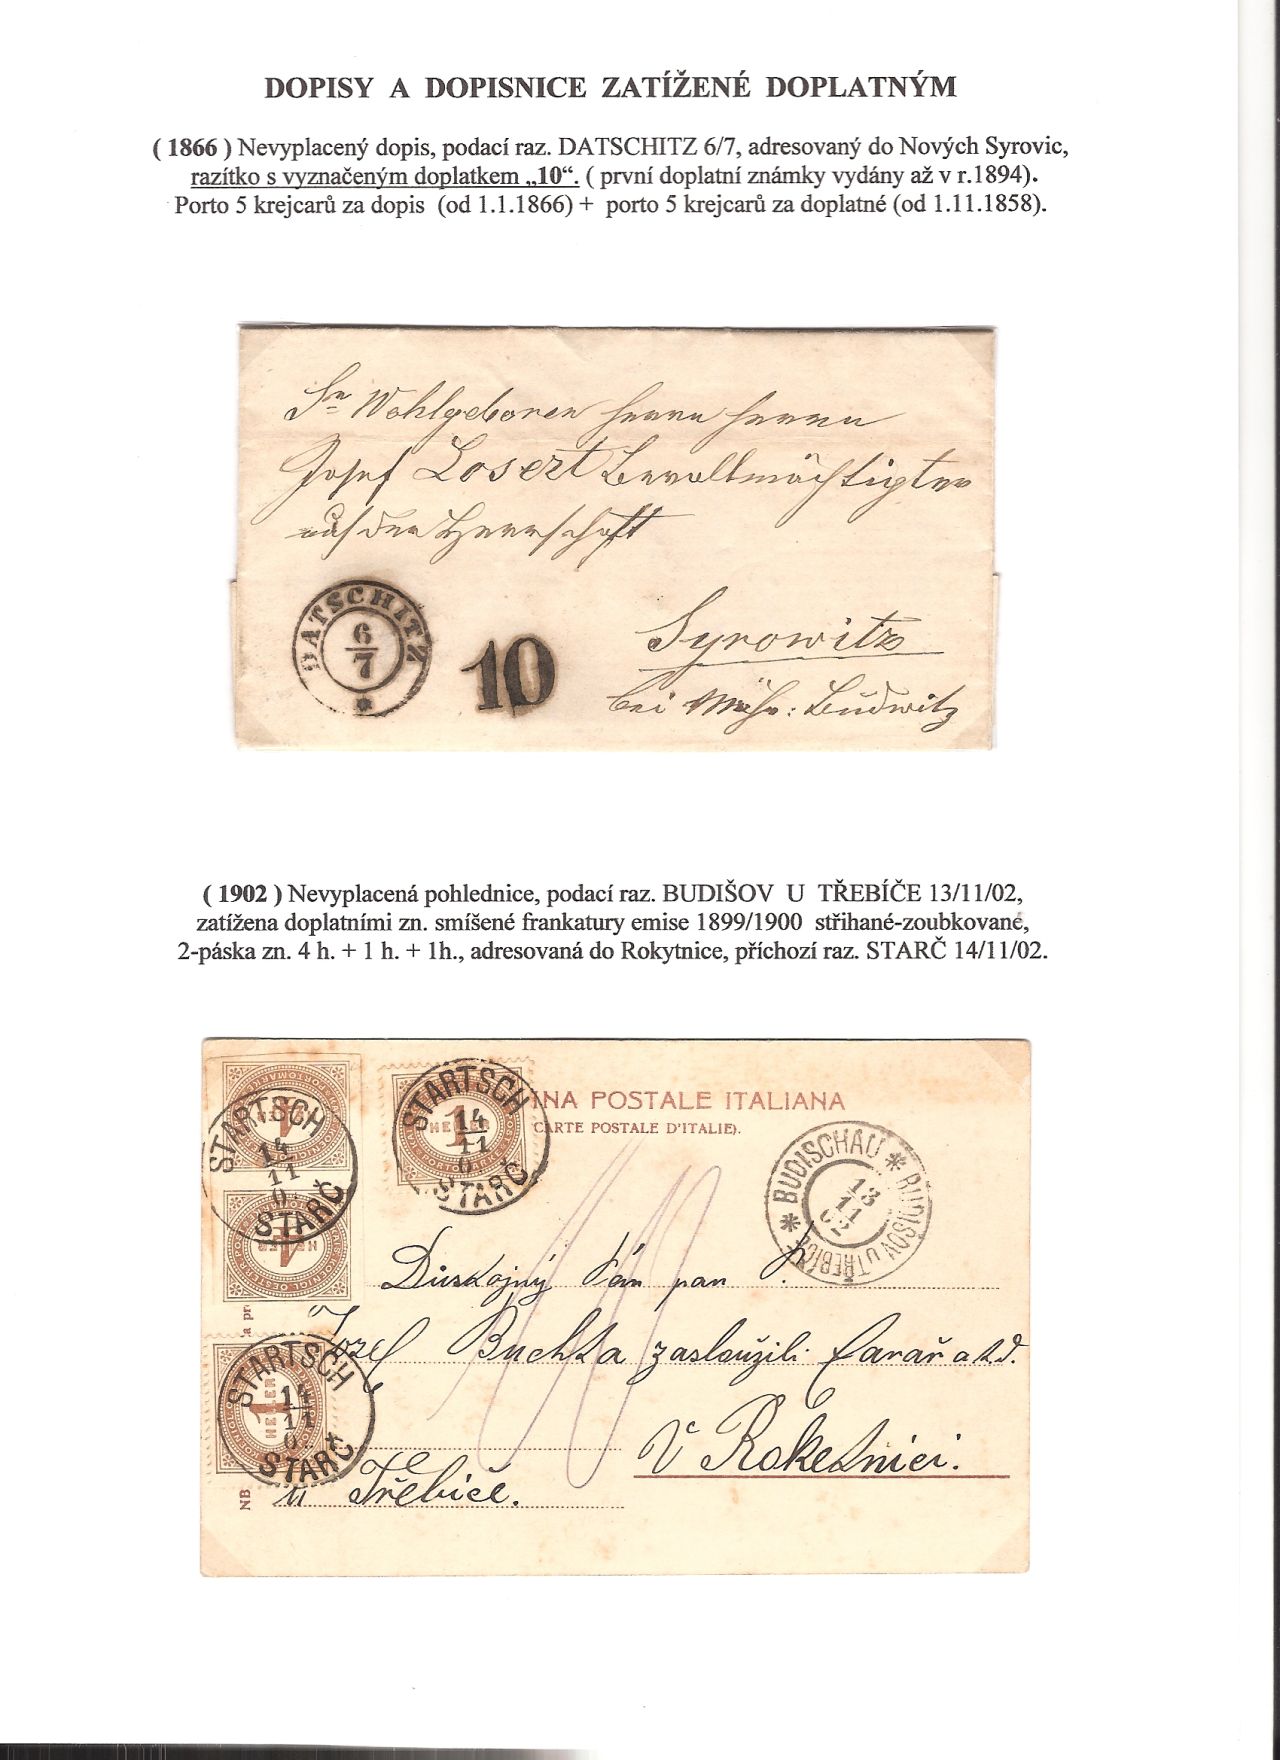 DOPISY A DOPISNICE ZATÍŽENÉ DOPLATNÝM
( 1866 ) Nevyplacený dopis, podací raz. DATSCHITZ 6/7, adresovaný do Nových Syrovic,
razítko s vyznačeným doplatkem „10“. ( první doplatní známky vydány až v r.1894).
Porto 5 krejcarů za dopis (od 1.1.1866) + porto 5 krejcarů za doplatné (od 1.11.1858).
Sr Wohlgeboren Herrn Herrn
Josef Losert Bevollmächtigter
auf der Herrschaft
DATSCHITZ
6/7
10
Syrowitz
bei Mähr: Budwitz
( 1902 ) Nevyplacená pohlednice, podací raz. BUDIŠOV U TŘEBÍČE 13/11/02,
zatížena doplatními zn. smíšené frankatury emise 1899/1900 střihané-zoubkované,
2-páska zn. 4 h. + 1 h. + 1h., adresovaná do Rokytnice, příchozí raz. STARČ 14/11/02.
INA POSTALE ITALIANA
(CARTE POSTALE D'ITALIE).
STARTSCH
14
11
STARČ
STARTSCH
14
11
STARČ
1
HELLER
4
HELLER
BUDISCHAU * BUDIŠOV U TŘEBÍČE *
13
11
02
Důstojný Pán pan P.
Jozef Buchta zasloužilí farář a t.d.
V Roketnici.
u Třebíče.
STARTSCH
14
11
STARČ
1
HELLER
NB